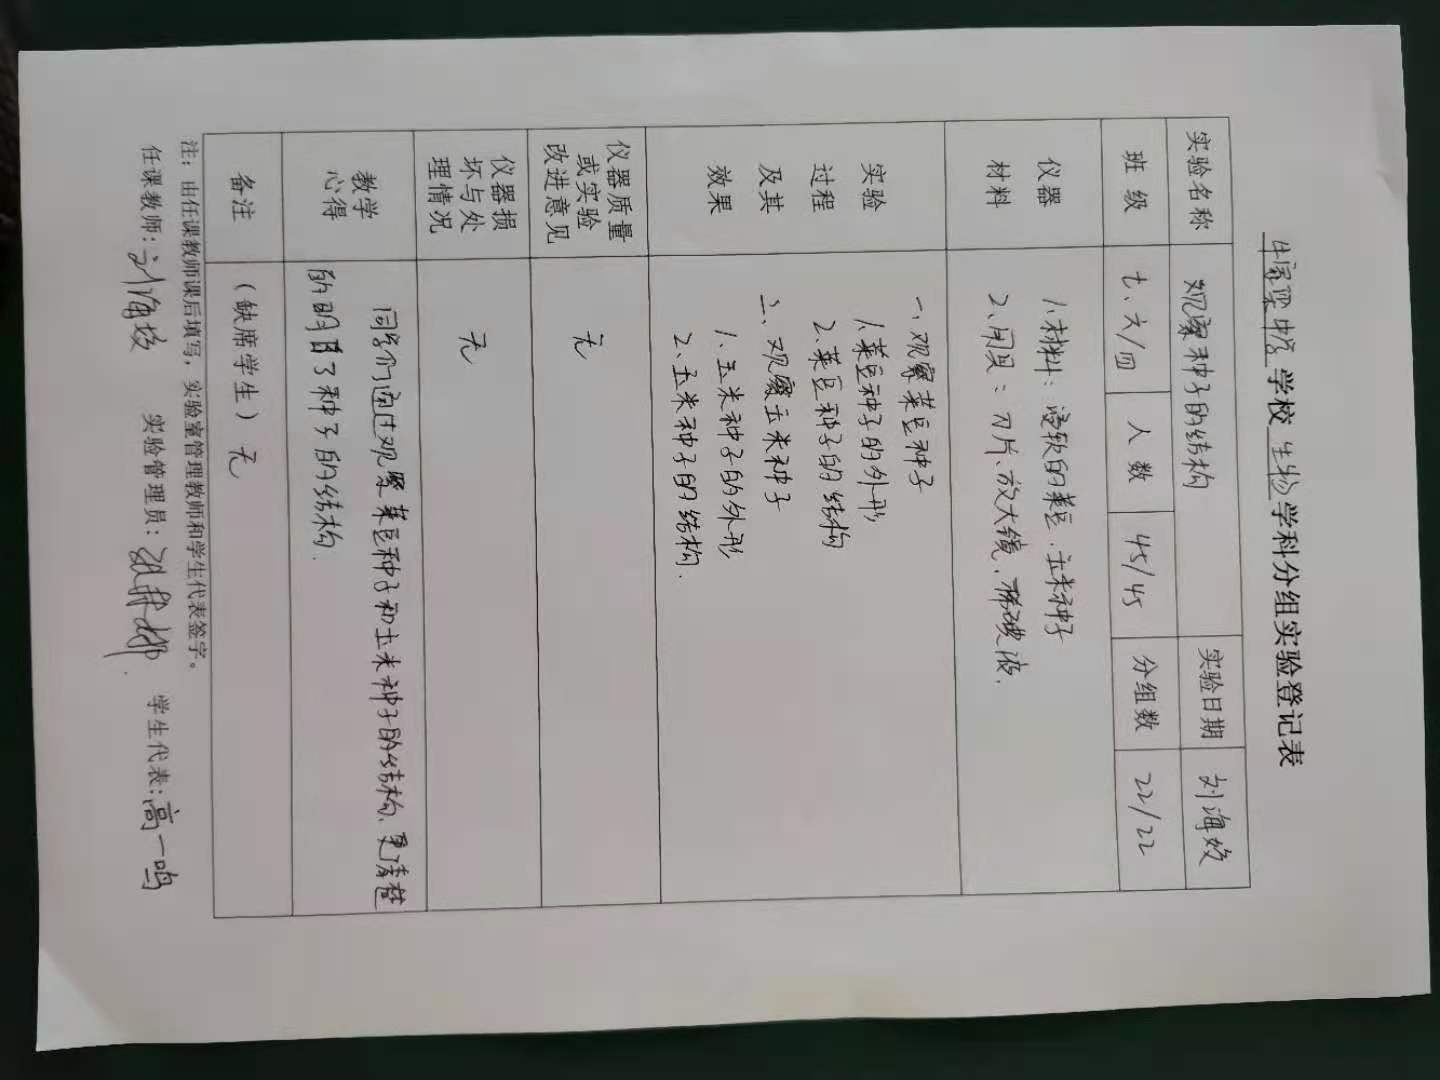 牛家梁中学学校生物学科分组实验登记表
实验名称 观察种子的结构 实验日期 刘海效
班级 七、六/四 人数 45/45 分组数 22/22
仪器
材料
1、材料：浸软的菜豆、玉米种子
2、用具：刀片、放大镜、稀碘液.
实验
过程
及其
效果
一、观察菜豆种子
1、菜豆种子的外形
2、菜豆种子的结构
二、观察玉米种子
1、玉米种子的外形
2、玉米种子的结构.
仪器质量
或实验
改进意见
无
仪器损
坏与处
理情况
无
教学
心得
同学们通过观察菜豆种子和玉米种子的结构、更清楚
的明白了种子的结构.
备注 （缺席学生）无
注：由任课教师课后填写，实验室管理教师和学生代表签字。
任课教师：刘海效 实验管理员： 学生代表：高一鸣